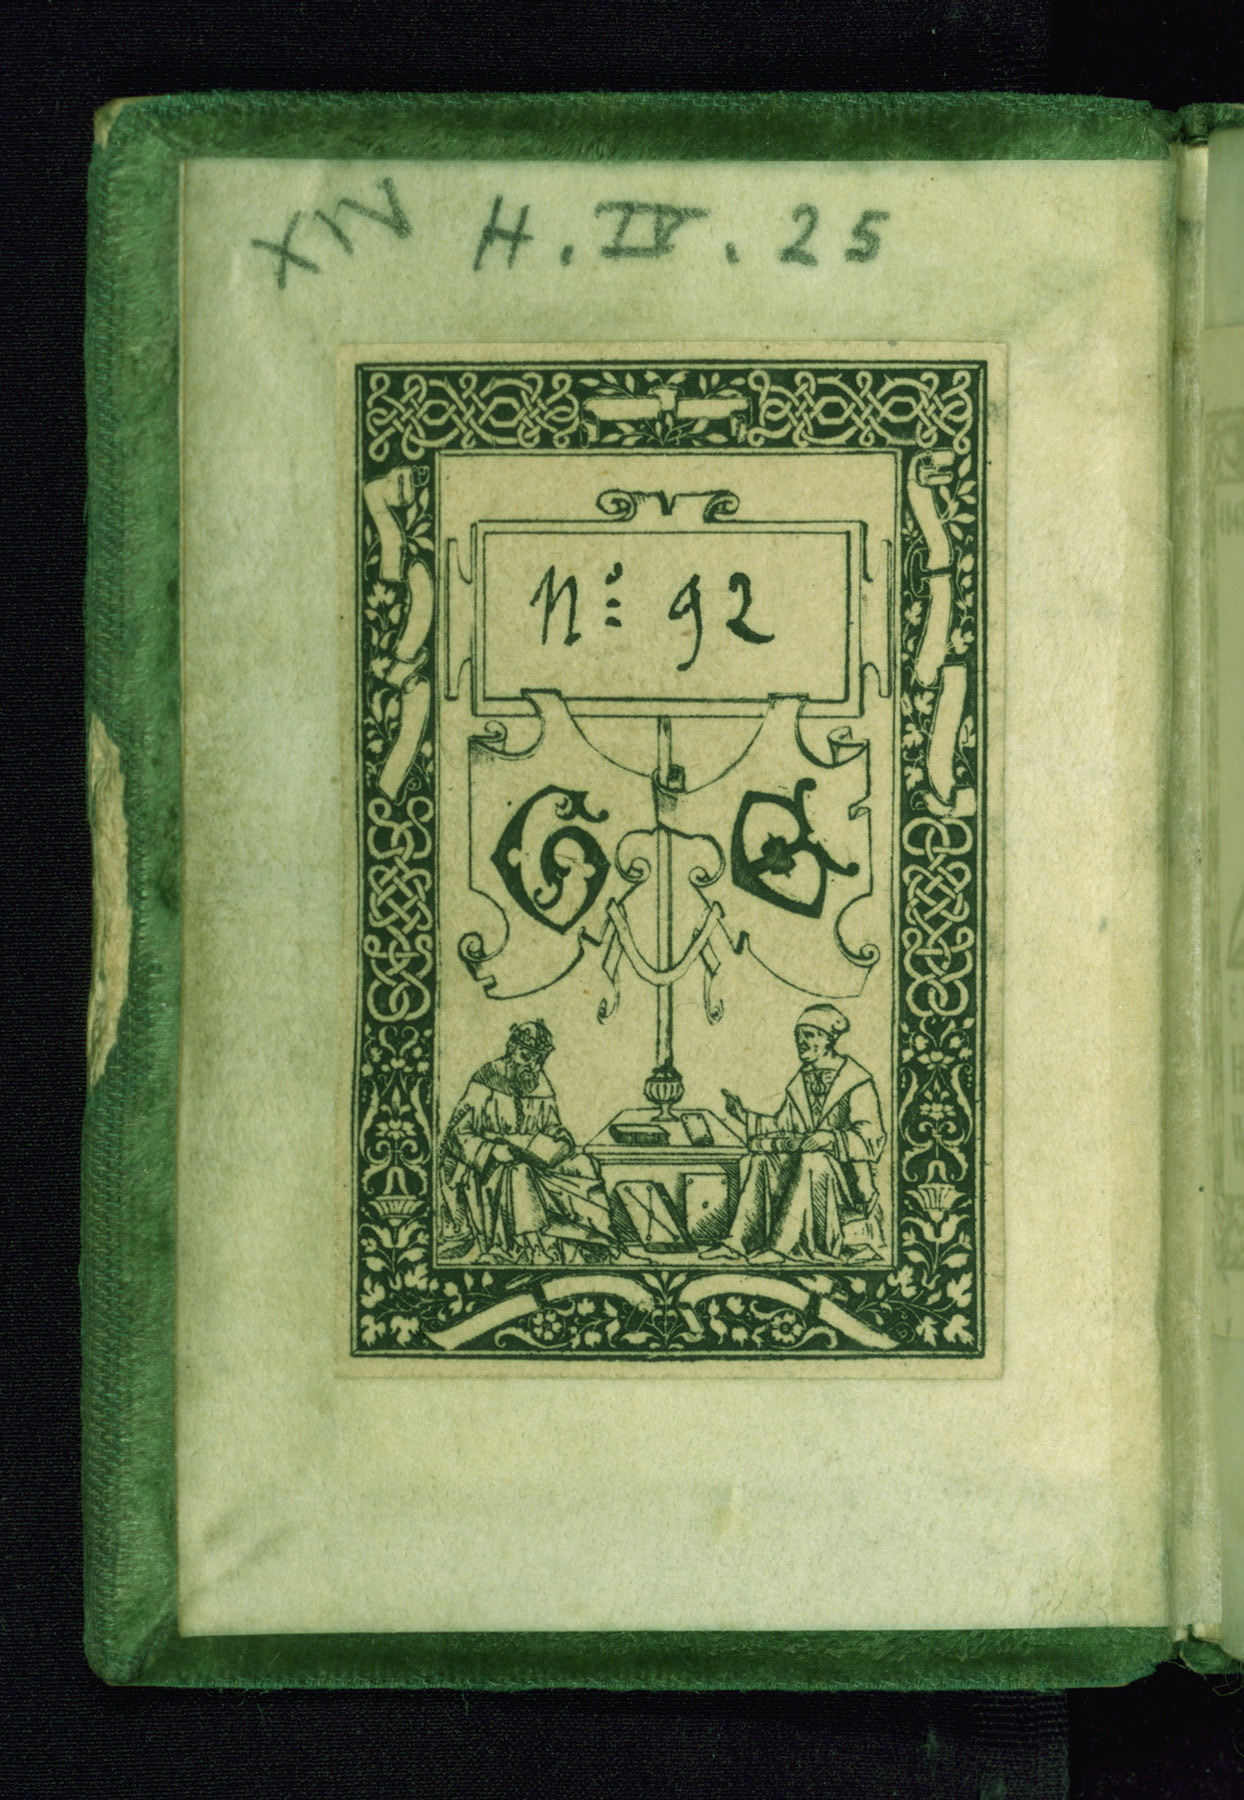 XIV H. IV. 25
No: 92
G B